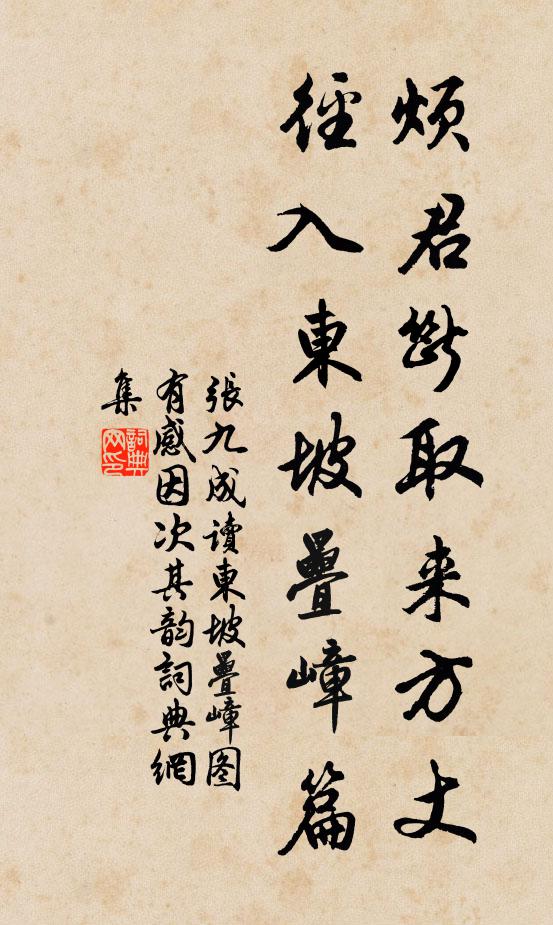 烦君断取来方丈
径入東坡疊嶂篇
張九成读東坡疊嶂图
有感因次其韵詞典網
集
詞典網印